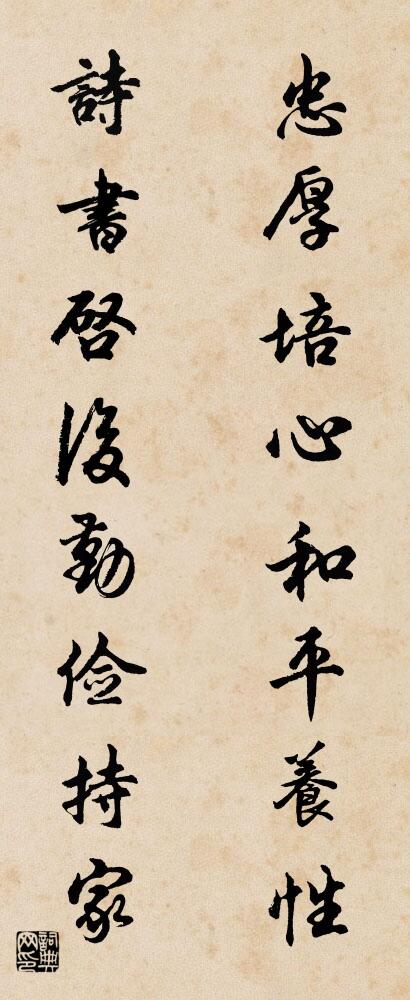 忠厚培心和平養性
詩書啓後勤儉持家
詞典网印